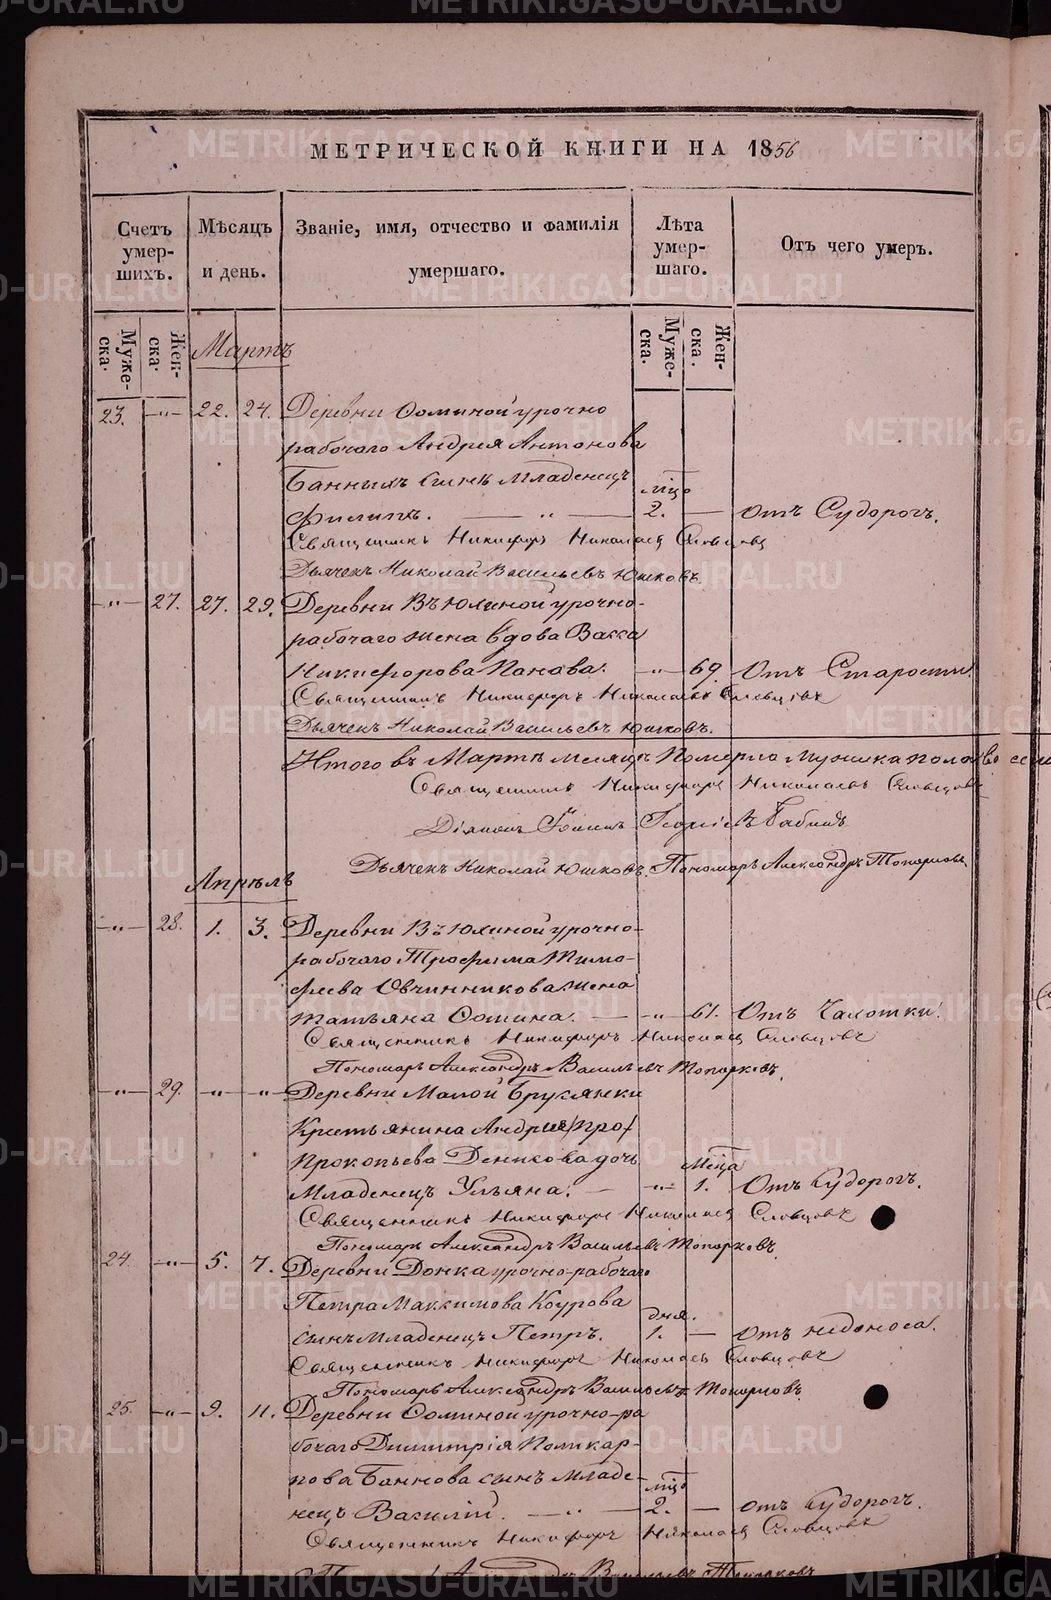 МЕТРИЧЕСКОЙ КНИГИ НА 1856
Счетъ умер-шихъ. Мѣсяцъ и день. Званіе, имя, отчество и фамилія умершаго. Лѣта умер-шаго. Отъ чего умеръ.
Муже-ска. Жен-ска. Муже-ска. Жен-ска.
Мартъ
23. —„— 22. 24. Деревни Соминой урочно
рабочаго Андрея Антонова
Банныхъ сынъ младенецъ
Филипъ. — „ — 2. — Отъ Судорогъ.
Священникъ Никифоръ Николаевъ Словцовъ
Дьячекъ Николай Васильевъ Юшковъ.
—„— 27. 27. 29. Деревни Вьюхиной урочно-
рабочаго жена вдова Васса
Никифорова Панова. —„— 69. Отъ Старости.
Священникъ Никифоръ Николаевъ Словцовъ
Дьячекъ Николай Васильевъ Юшковъ.
Итого въ Мартѣ месяцѣ Померло мужска пола
Священникъ Никифоръ Николаевъ Словцовъ
Діаконъ Іоаннъ Георгіевъ Бабинъ
Дьячекъ Николай Юшковъ. Пономарь Александръ Топорковъ
Апрѣль
—„— 28. 1. 3. Деревни Вьюхиной урочно-
рабочаго Трофима Тимо-
феева Овчинникова жена
Татьяна Сомина. — —„— 61. Отъ Чахотки.
Священникъ Никифоръ Николаевъ Словцовъ
Пономарь Александръ Васильевъ Топорковъ.
—„— 29. —„— —„— Деревни Малой Брусянки
Крестьянина Андрея /про/
Прокопьева Денисова дочь
Младенецъ Ульяна. — —„— 1. Отъ Судорогъ.
Священникъ Никифоръ Николаевъ Словцовъ
Пономарь Александръ Васильевъ Топорковъ.
24. —„— 5. 7. Деревни Донка урочно-рабочаго
Петра Максимова Коурова
дня.
сынъ младенецъ Петръ. 1. — Отъ недоноса.
Священникъ Никифоръ Николаевъ Словцовъ
Пономарь Александръ Васильевъ Топорковъ
25. —„— 9. 11. Деревни Соминой урочно-ра
бочаго Димитрія Поликар-
пова Баннова сынъ младе-
нецъ Василій. — „ — 2. — Отъ Судорогъ.
Священникъ Никифоръ Николаевъ Словцовъ
Александръ Васильевъ Топорковъ
METRIKI.GASO-URAL.RU